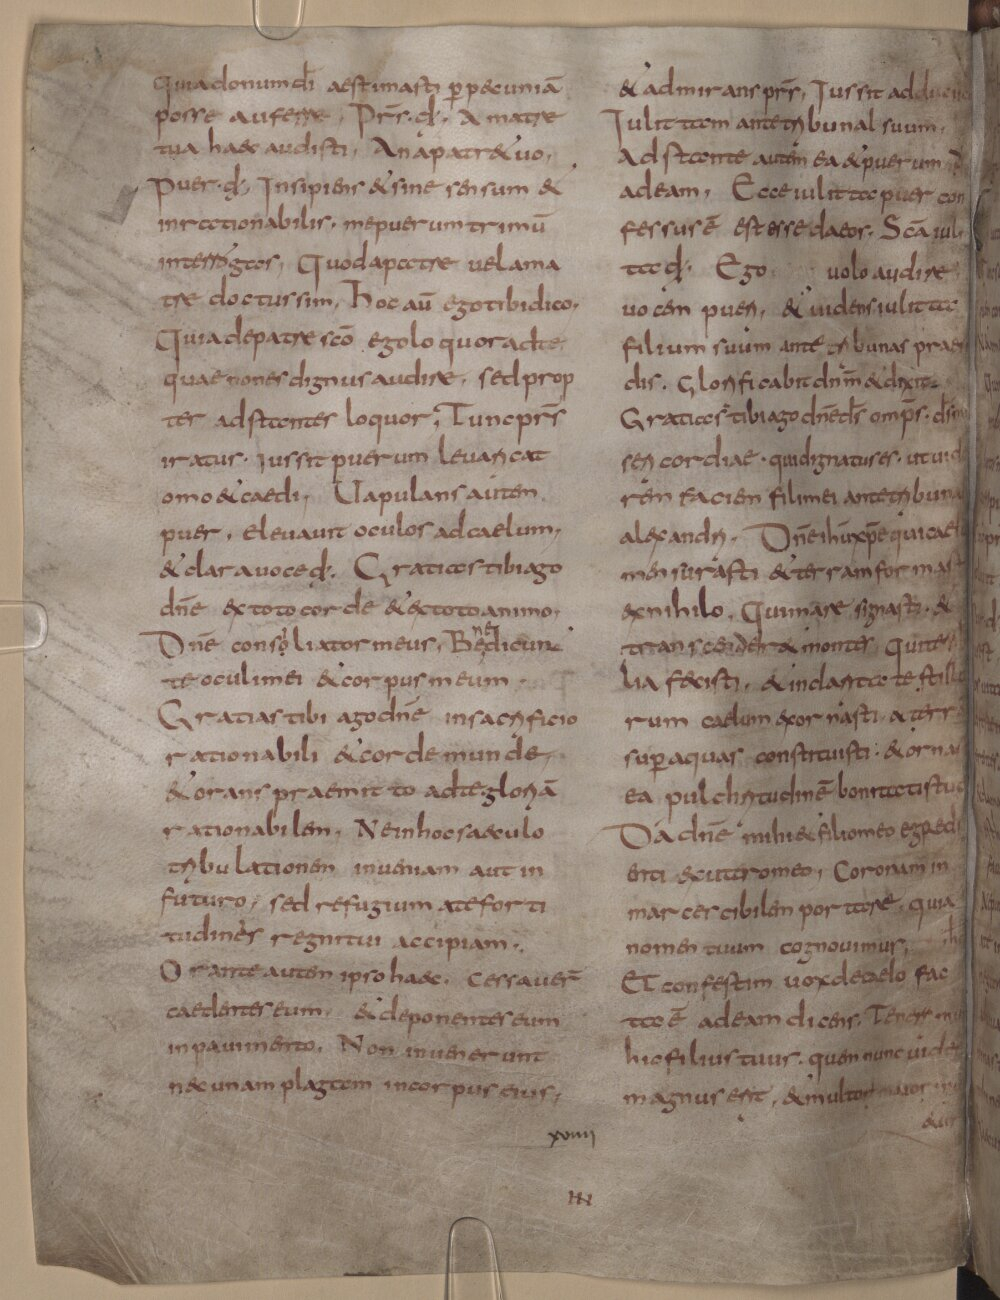 Quia donum dī aestimasti p pecuniā
posse auferre. Prs. qđ. A matre
tua haec audisti, An apatre tuo,
Puer. qđ. Insipiens & sine sensum &
inrationabilis. me puerum trimū
interrogas. Quod a patre vel a ma
tre doctus sim. Hoc aū ego tibi dico.
Quia de patre scō ego loquor ad te
quae non es dignus audire. sed prop
ter adstantes loquor; Tunc prs
iratus. iussit puerum levari cat
omo & caedi. Vapulans autem
puer, elevavit oculos ad caelum,
& clara voce qđ. Gratias tibi ago
dnē ex toto corde & ex toto animo.
Dnē consoliator meus. Benedicunt
te oculi mei & corpus meum.
Gratias tibi ago dnē in sacrificio
rationabili & corde munde,
& orans praemitto ad te gloriā
rationabilem. Ne in hoc saeculo
tribulationem inveniam aut in
futuro, sed refugium a te forti
tudines regni tui accipiam.
Orante autem ipso haec. Cessaverт̄
caedentes eum. & deponentes eum
in pavimento. Non invenerunt
nec unam plagam in corpus eius.
& admirans prs, Iussit adduci
Iulittam ante tribunal suum.
Adstante autem ea & puerum
ad eam. Ecce iulitta puer con
fessus ē est esse daeos. Scā iuli
tta qđ. Ego volo audire
vocem pueri. & videns iulitta
filium suum ante tribunas prae
dis. Glorificabit dnm & dixit.
Gratias tibi ago dnē ds omps. ds mi
sericordiae. qui dignatus es. ut vid
rem faciem fili mei ante tribuna
alexandri. Dnē ihu xpe qui cael
mensurasti & terram formast
ex nihilo. Qui mare signasti. &
transcendere montes
lia fecisti. & in claritate stilla
rum caelum exornasti. & terr
sup aquas constituisti. & ornas
ea pulchritudinē bonitatis tuae
Da dnē mihi & filio meo egredi
enti ex utero meo, Coronam in
marcescibilem portare. quia
nomen tuum cognovimus.
Et confestim vox de caelo fac
ta ē ad eam dicens. Tenere
hic filius tuus. quem nunc vides
magnus erit, & multo maior
xviiii